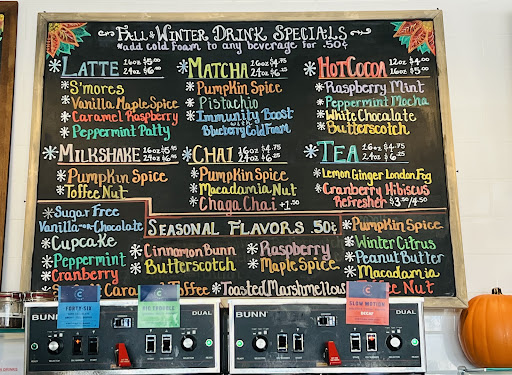 Fall & Winter Drink Specials
*add cold foam to any beverage for .50¢
*Latte 16oz $5.00
24oz $6.00
*S'mores
*Vanilla Maple Spice
*Caramel Raspberry
*Peppermint Patty
*Matcha 16oz $4.75
24oz $6.25
*Pumpkin Spice
*Pistachio
*Immunity Boost
with
Blueberry Cold Foam
*Hot Cocoa 12oz $4.00
16oz $5.00
*Raspberry Mint
*Peppermint Mocha
*White Chocolate
*Butterscotch
*Milkshake 16oz
24oz
*Pumpkin Spice
*Toffee Nut
*Chai 16oz $4.75
24oz $6.25
*Pumpkin Spice
*Macadamia Nut
*Chaga Chai +1.50
*Tea 16oz $4.75
24oz $6.25
*Lemon Ginger London Fog
*Cranberry Hibiscus
Refresher $3.50/4.50
Seasonal Flavors .50¢
*Sugar Free
Vanilla or Chocolate
*Cupcake
*Peppermint
*Cranberry
Caramel Toffee
*Cinnamon Bunn
*Butterscotch
*Raspberry
*Maple Spice
*Toasted Marshmellow
*Pumpkin Spice
*Winter Citrus
*Peanut Butter
*Macadamia
Toffee Nut
FORTY-SIX
SLOW MOTION
DECAF
BUNN DUAL
BUNN DUAL